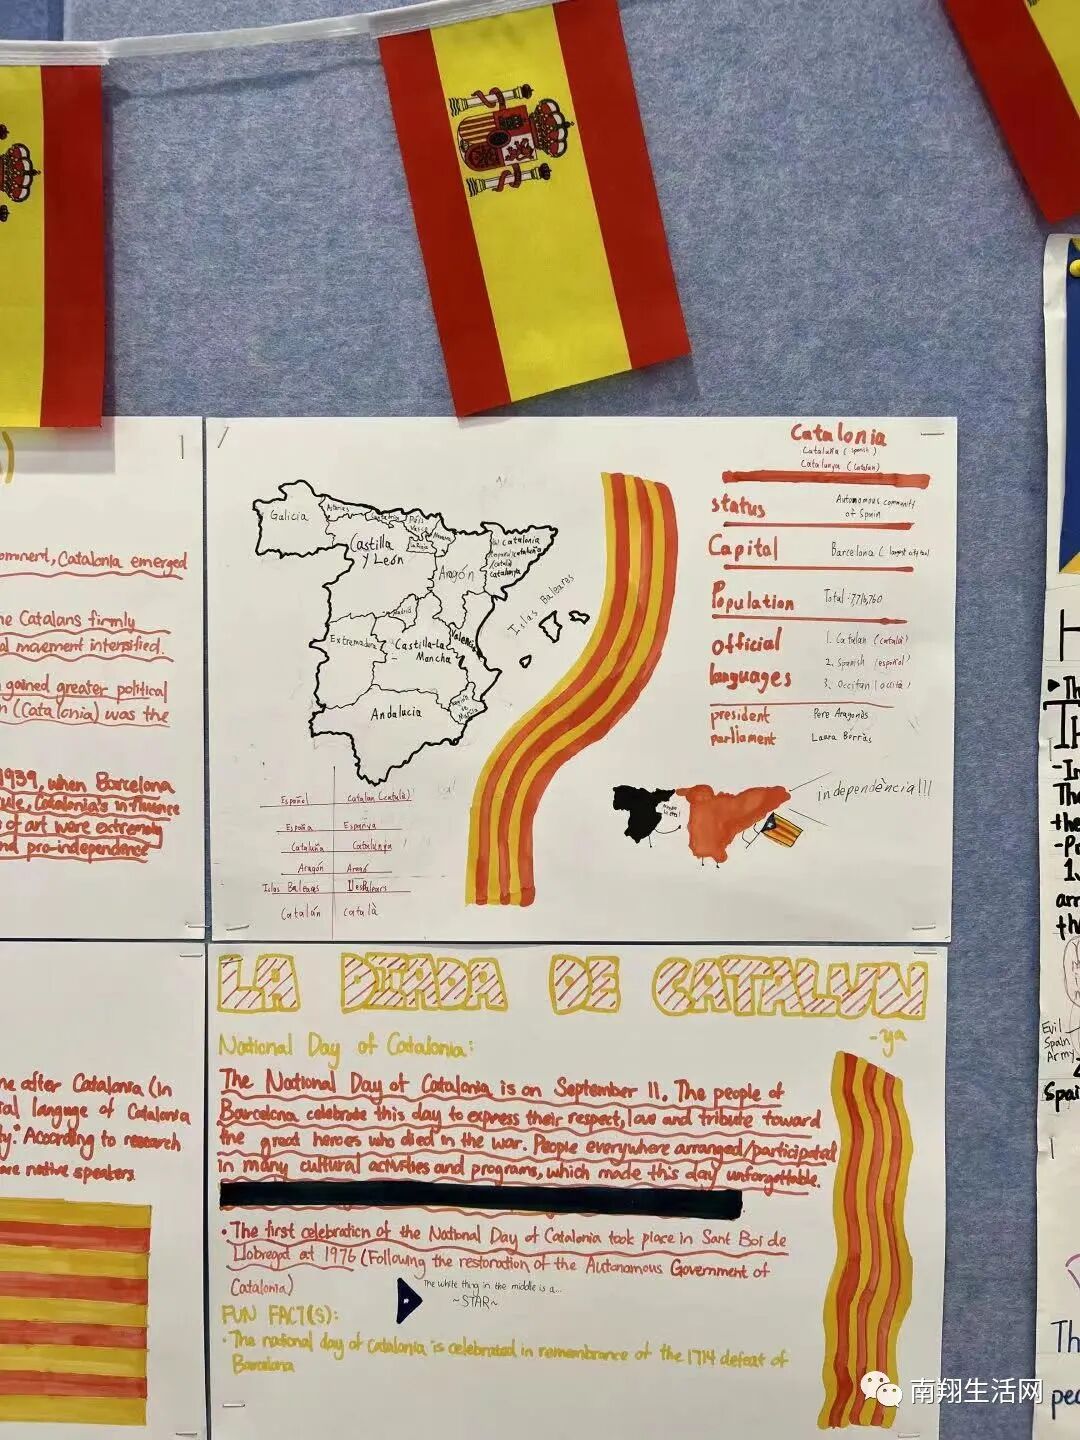 ominent, Catalonia emerged
he Catalans firmly
al movement intensified.
gained greater political
n (Catalonia) was the
1939, when Barcelona
rule, Catalonia's influence
s of art were extremely
nd pro-independence
ne after Catalonia (in
ral language of Catalonia
ty." According to research
are native speakers.
Galicia
Asturias
Cantabria
País
Vasco
Navarra
La Rioja
Castilla
y León
Aragón
Catalonia
Cataluña
Catalunya
Islas Baleares
Madrid
Extremadura
Castilla-La
Mancha
Valencia
Andalucía
Región de
Murcia
Español Catalan (català)
España Espanya
Cataluña Catalunya
Aragón Aragó
Islas Baleares Illes Balears
Catalán Català
Catalonia
Cataluña (spanish)
Catalunya (Catalan)
status Autonomous community
of Spain
Capital Barcelona (largest city too)
Population Total: 7,716,760
official
languages
1. Catalan (català)
2. Spanish (español)
3. Occitan (occità)
president Pere Aragonès
parliament Laura Borràs
independència!!!
LA DIADA DE CATALUN
-ya
National Day of Catalonia:
The National Day of Catalonia is on September 11. The people of
Barcelona celebrate this day to express their respect, love and tribute toward
the great heroes who died in the war. People everywhere arranged/participated
in many cultural activities and programs, which made this day unforgettable.
• The first celebration of the National Day of Catalonia took place in Sant Boi de
Llobregat at 1976 (Following the restoration of the Autonomous Government of
Catalonia)
The white thing in the middle is a...
~STAR~
FUN FACT(S):
• The national day of catalonia is celebrated in remembrance of the 1714 defeat of
Barcelona
Evil
Spain
Army
南翔生活网